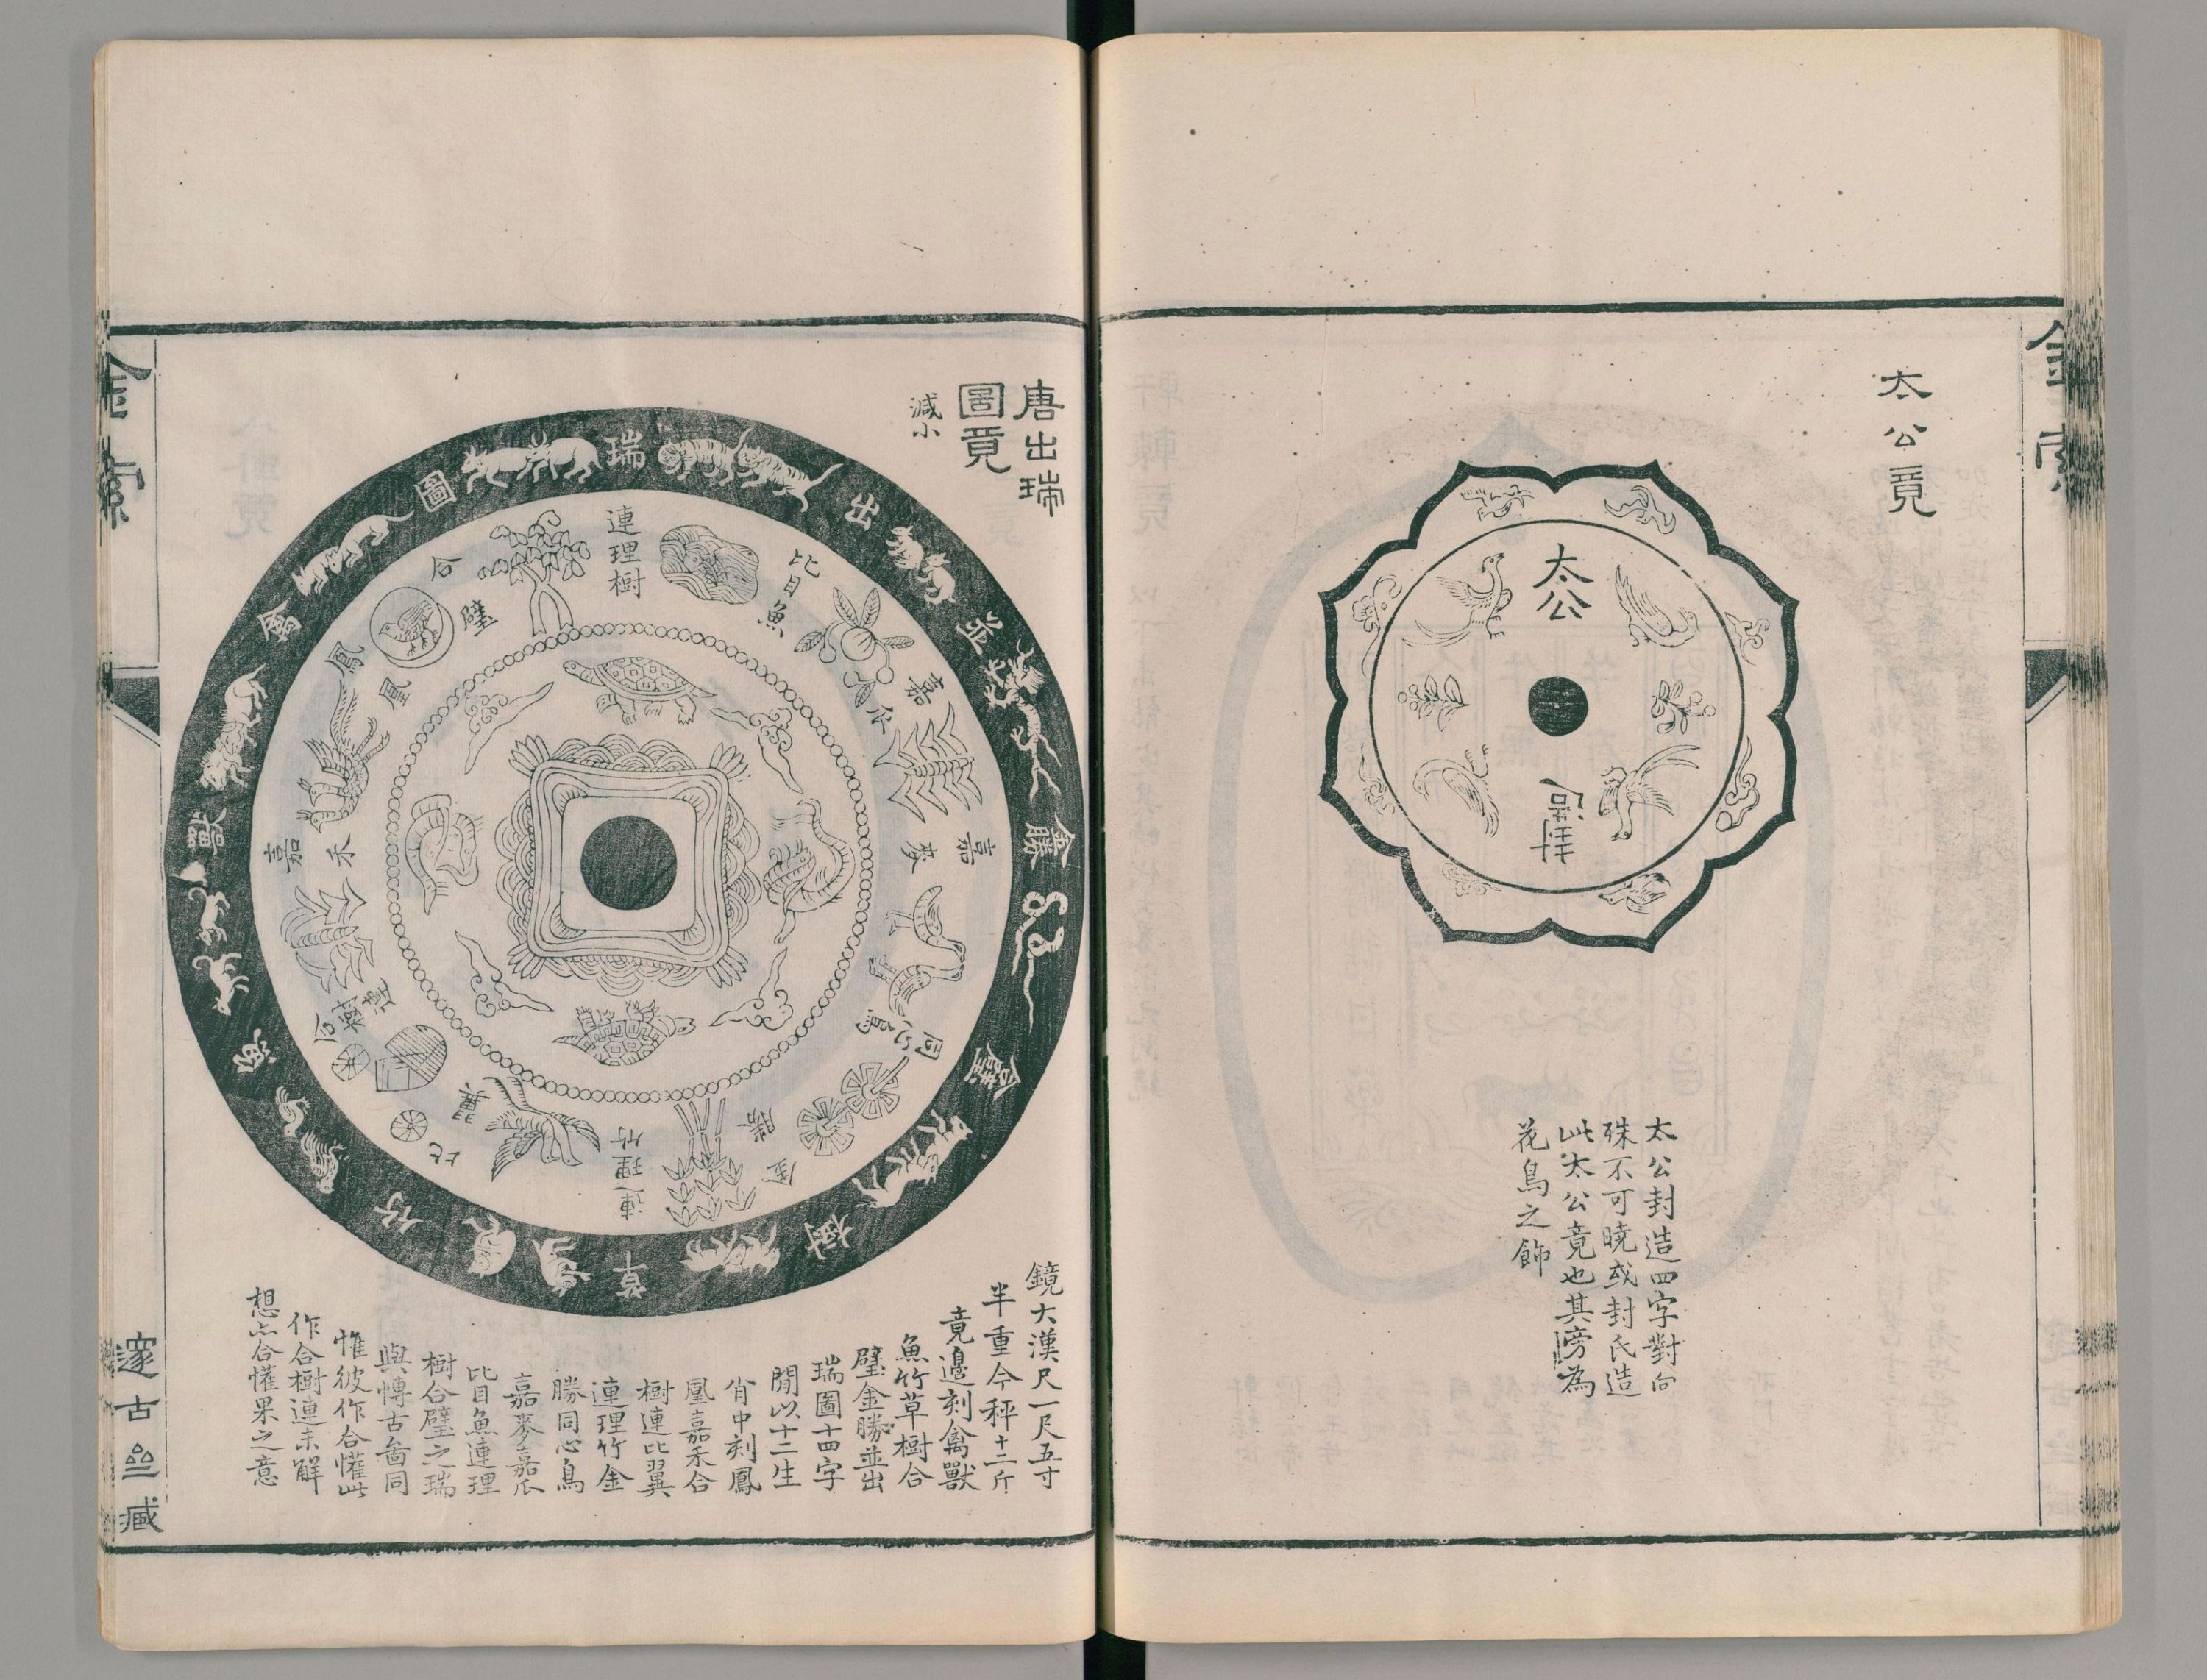 金索
太公竟
太公
封造
太公封造四字對向
殊不可曉或封氏造
此太公竟也其旁為
花鳥之飾
唐出瑞
圖竟
減小
瑞
出
並
金勝
合璧
樹
草
竹
魚
獸
禽
圖
連理樹
比目魚
嘉瓜
嘉麥
同心鳥
金勝
連理竹
比翼
合樹連
嘉禾
鳳凰
合璧
鏡大漢尺一尺五寸
半重今秤十二斤
竟邊刻禽獸
魚竹草樹合
璧金勝並出
瑞圖十四字
閒以十二生
肖中刻鳳
凰嘉禾合
樹連比翼
連理竹金
勝同心鳥
嘉麥嘉瓜
比目魚連理
樹合璧之瑞
與博古啚同
惟彼作合懽此
作合樹連未解
想亦合懽果之意
金索
邃古齋藏